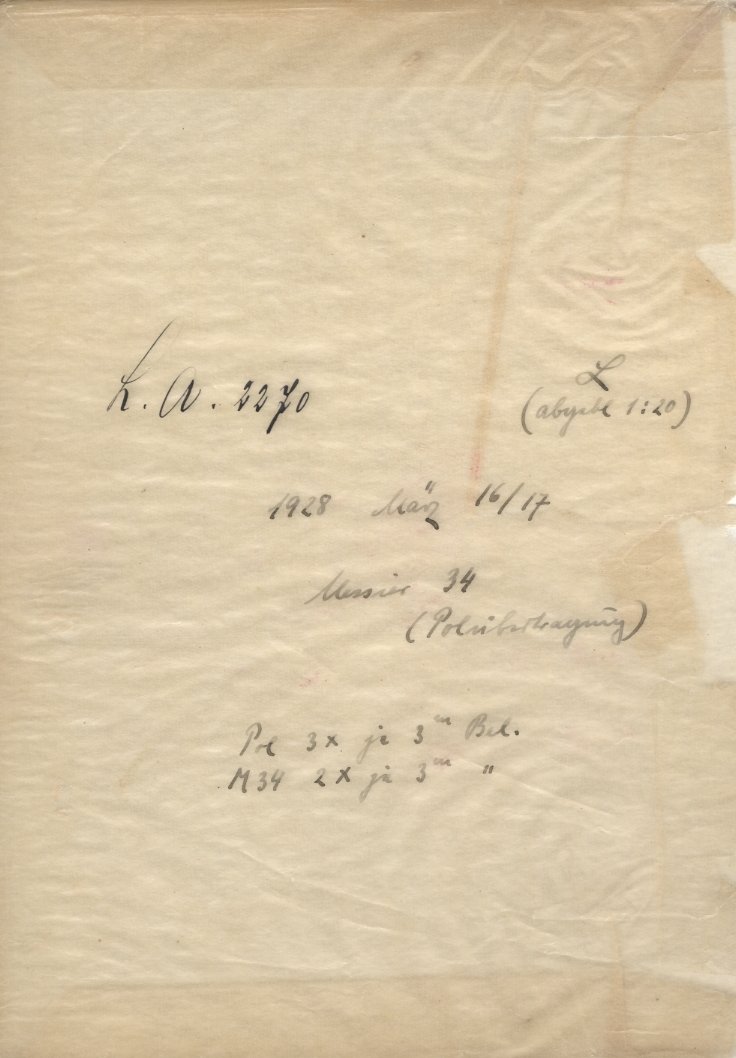 L. A. 2270
L
(abgebl 1:20)
1928 März 16/17
Messier 34
(Polübertragung)
Pol 3x je 3m Bel.
M34 2x je 3m "